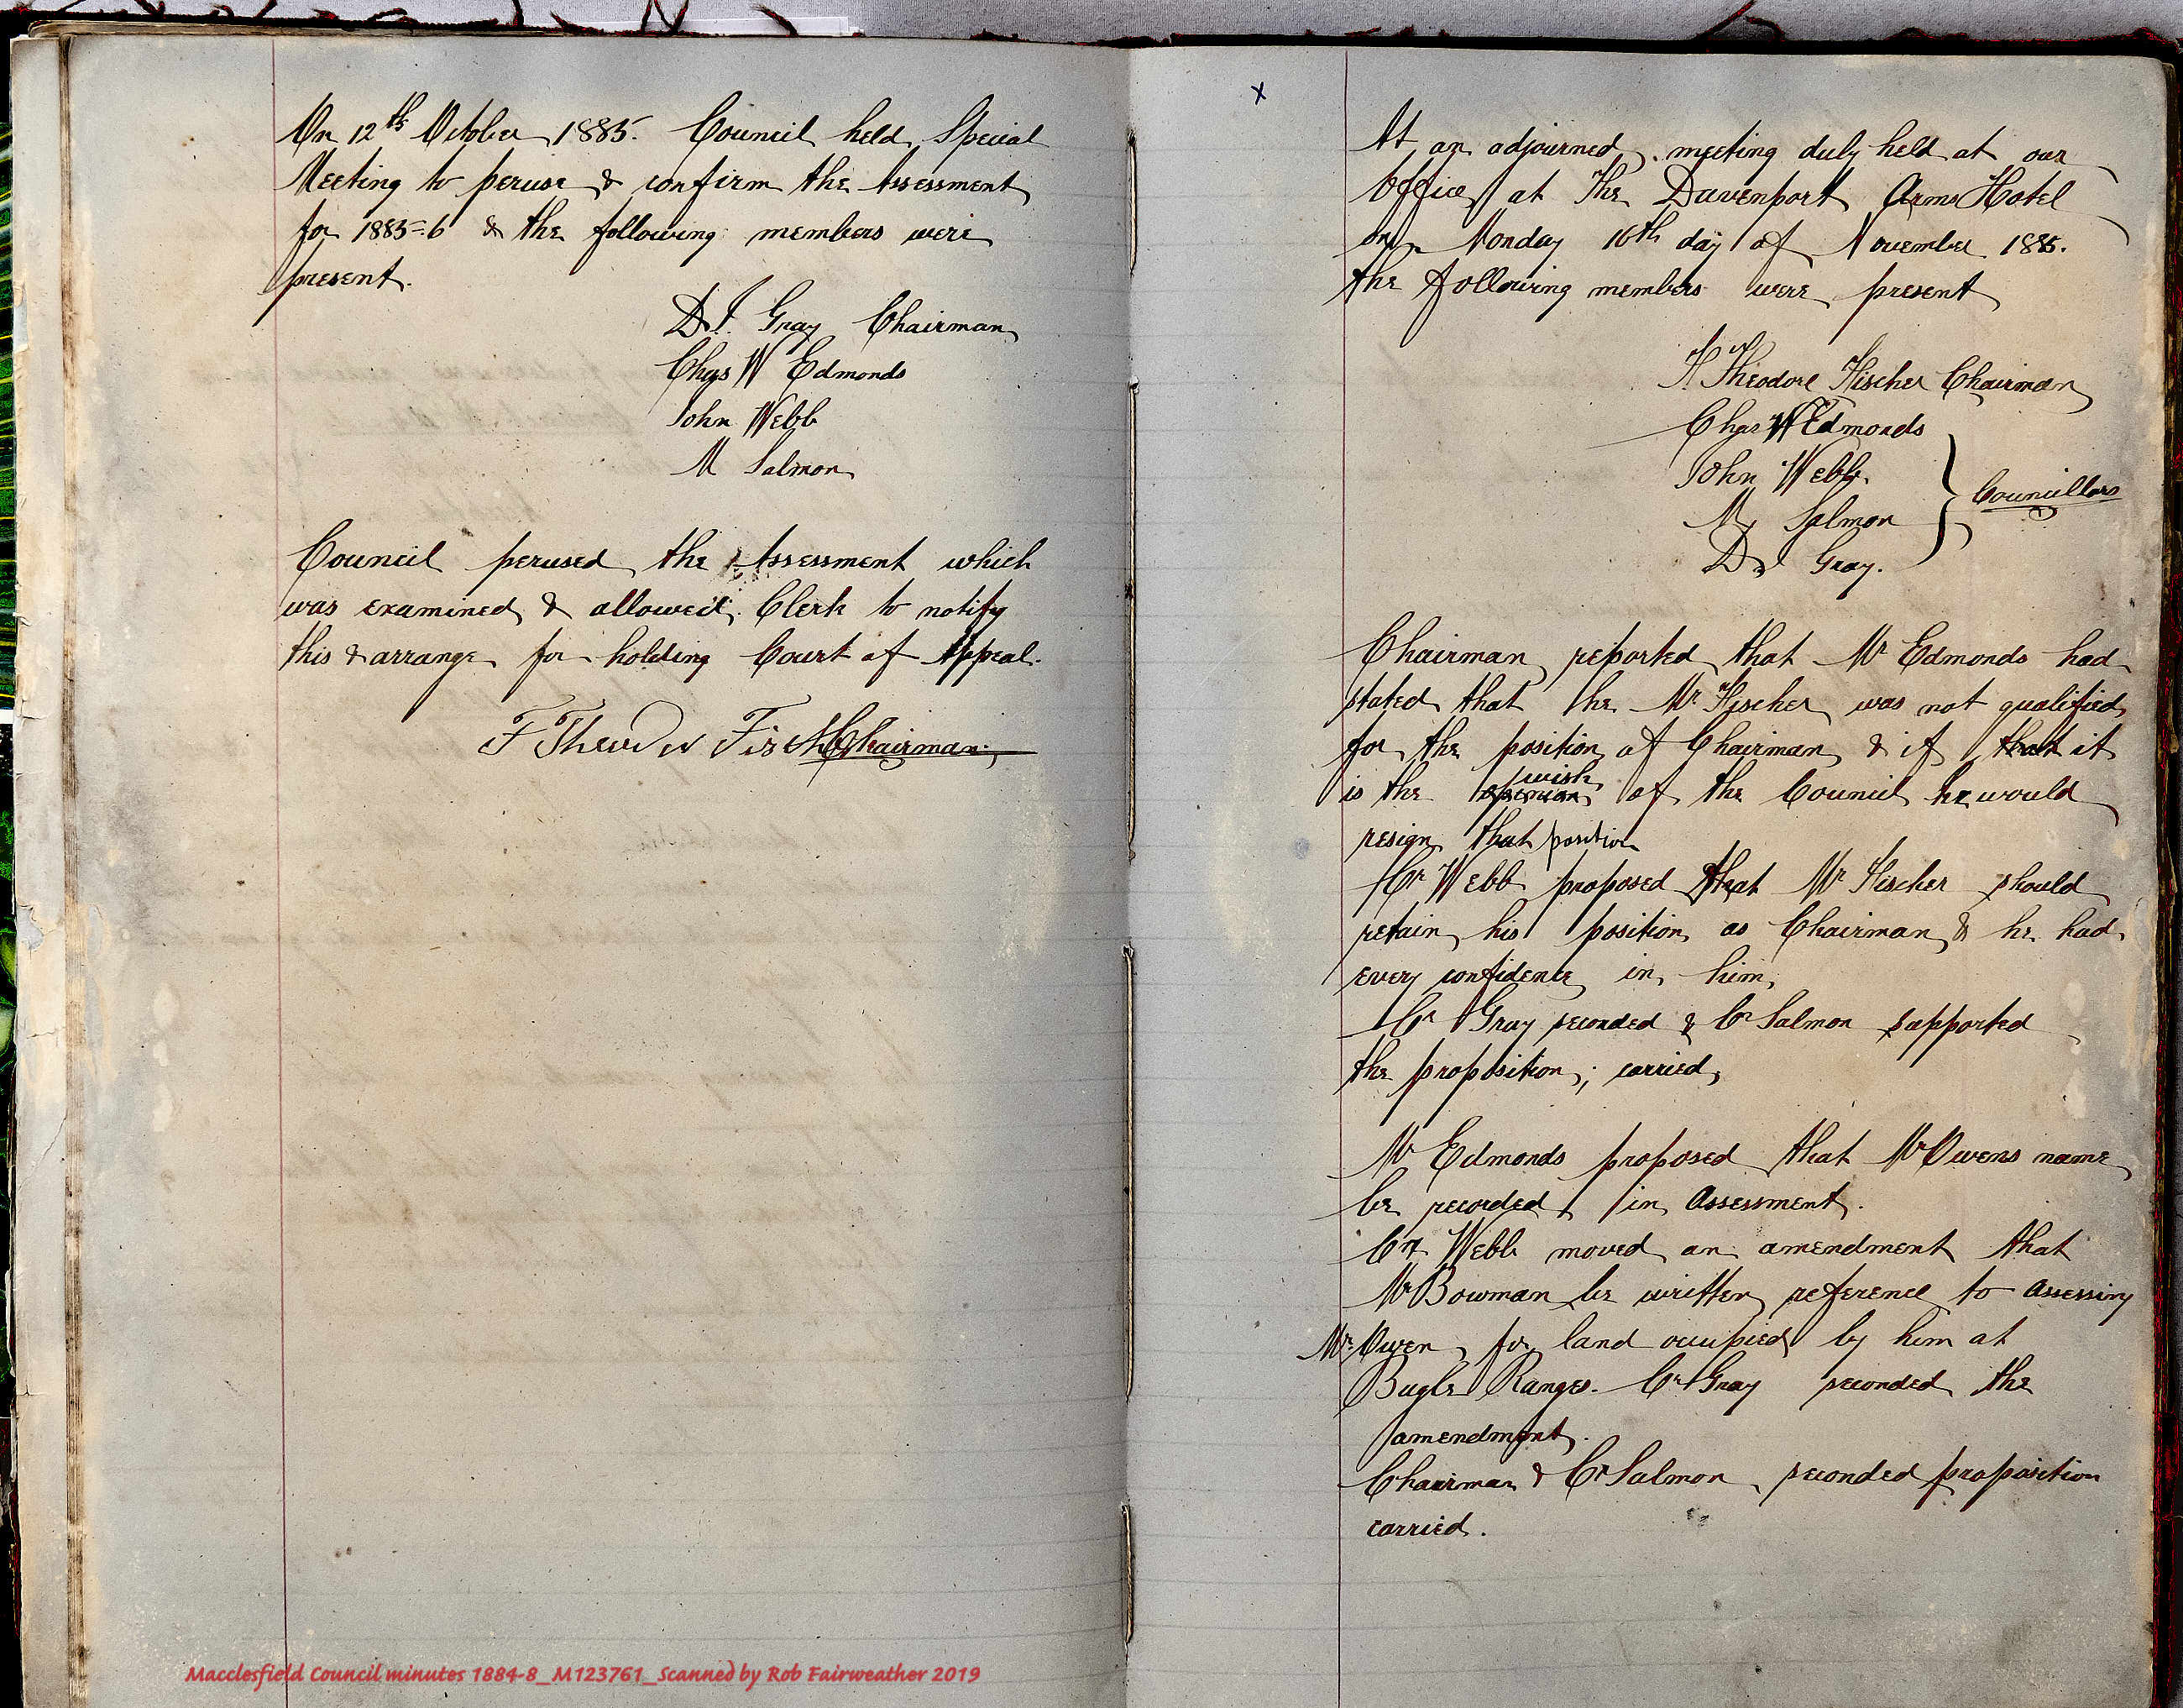 On 12th October 1885. Council held Special
Meeting to peruse & confirm the Assessment
for 1885-6 & the following members were
present.
D. J. Gray Chairman
Chas W Edmonds
John Webb
M Salmon
Council perused the Assessment which
was examined & allowed. Clerk to notify
this & arrange for holding Court of Appeal.
F Theodor Fischer Chairman
x
At an adjourned meeting duly held at our
Office at The Davenport Arms Hotel
on Monday 16th day of November 1885.
the following members were present
F Theodore Fischer Chairman
Chas W Edmonds
John Webb.
M Salmon
Councillors
D J Gray.
Chairman reported that Mr Edmonds had
stated that he Mr Fischer was not qualified
for the position of Chairman & if that it
wish
is the opinion of the Council he would
resign that position
Cr Webb proposed that Mr Fischer should
retain his position as Chairman & he had
every confidence in him,
Cr Gray seconded & Cr Salmon supported
the proposition; carried,
Mr Edmonds proposed that Mr Owens name
be recorded in Assessment.
Cr Webb moved an amendment that
Mr Bowman be written reference to Assessing
Mr Owen for land occupied by him at
Bugle Ranges. Cr Gray seconded the
amendment.
Chairman & Cr Salmon seconded proposition
carried.
Macclesfield Council minutes 1884-8_M123761_Scanned by Rob Fairweather 2019